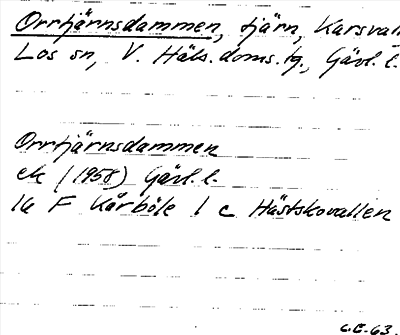 Orrtjärnsdammen, tjärn, Karsvall
Los sn, V. Häls. doms. lg., Gävl. l.
Orrtjärnsdammen
ek (1958) Gävl. l.
16 F Kårböle 1 c Hästskovallen
C.E. 63.